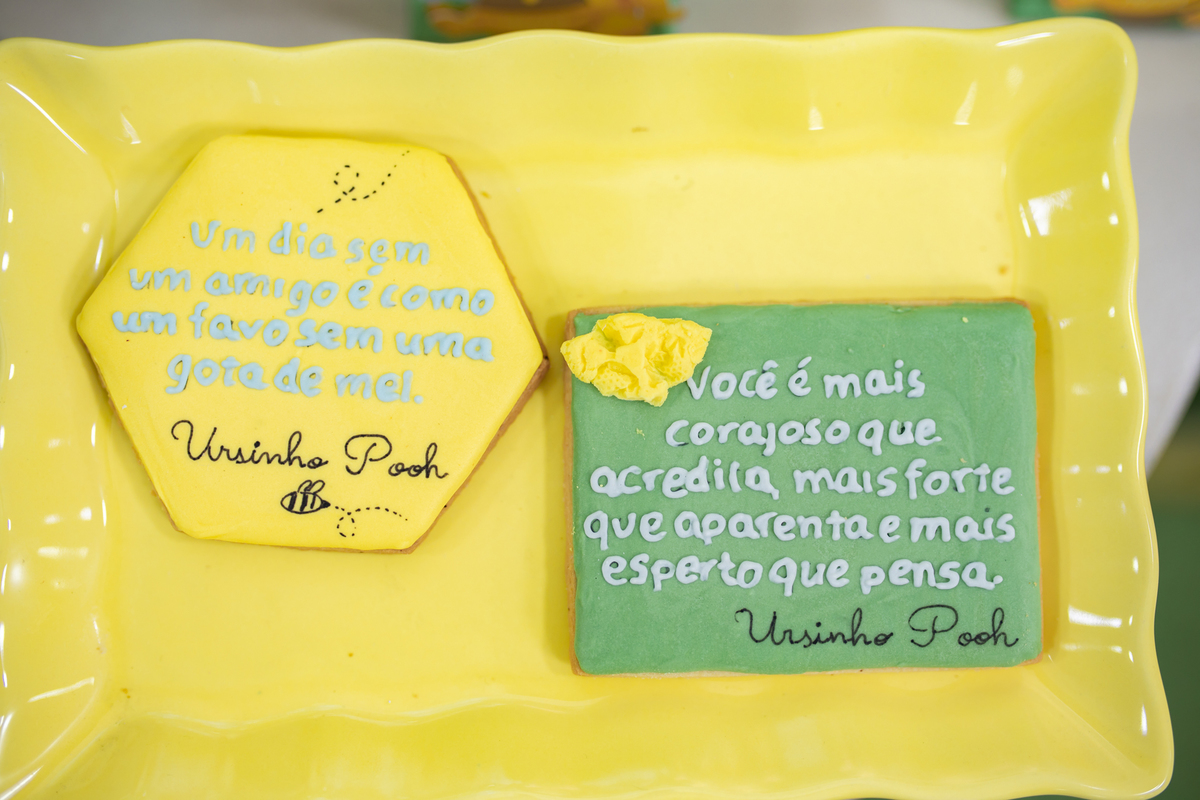 Um dia sem
um amigo é como
um favo sem uma
gota de mel.
Ursinho Pooh
Você é mais
corajoso que
acredita, mais forte
que aparenta e mais
esperto que pensa.
Ursinho Pooh